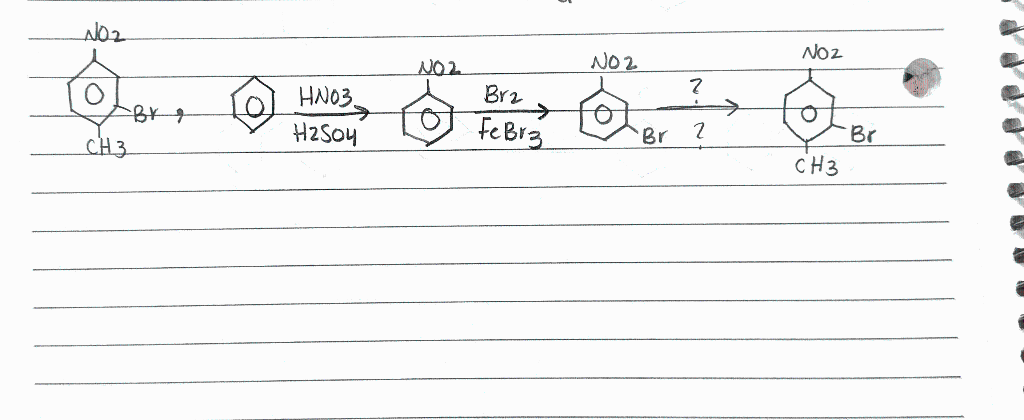 NO2
Br ,
CH3
HNO3
H2SO4
NO2
Br2
FeBr3
NO2
Br
?
?
NO2
Br
CH3